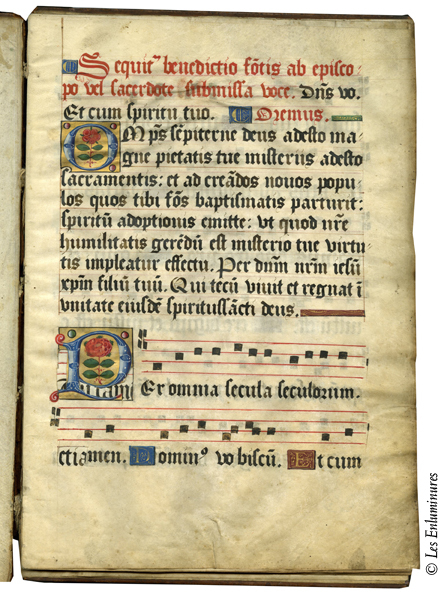 Sequit᷑ benedictio fōtis ab episco-
po vel sacerdote submissa voce. Dn̄s vo.
Et cum spiritu tuo. Oremus.
OMp̄s sēpiterne deus adesto ma-
gne pietatis tue misteriis adesto
sacramentis: et ad creādos nouos popu-
los quos tibi fōs baptismatis parturit:
spiritū adoptionis emitte: vt quod nr̄e
humilitatis gerēdū est misterio tue virtu-
tis impleatur effectu. Per dn̄m nr̄m iesū
xp̄m filiū tuū. Qui tecū viuit et regnat ī
vnitate eiusdē spiritussācti deus.
PEr omnia secula seculorum.
Dominꝰ vo biscū. Et cum
© Les Enluminures